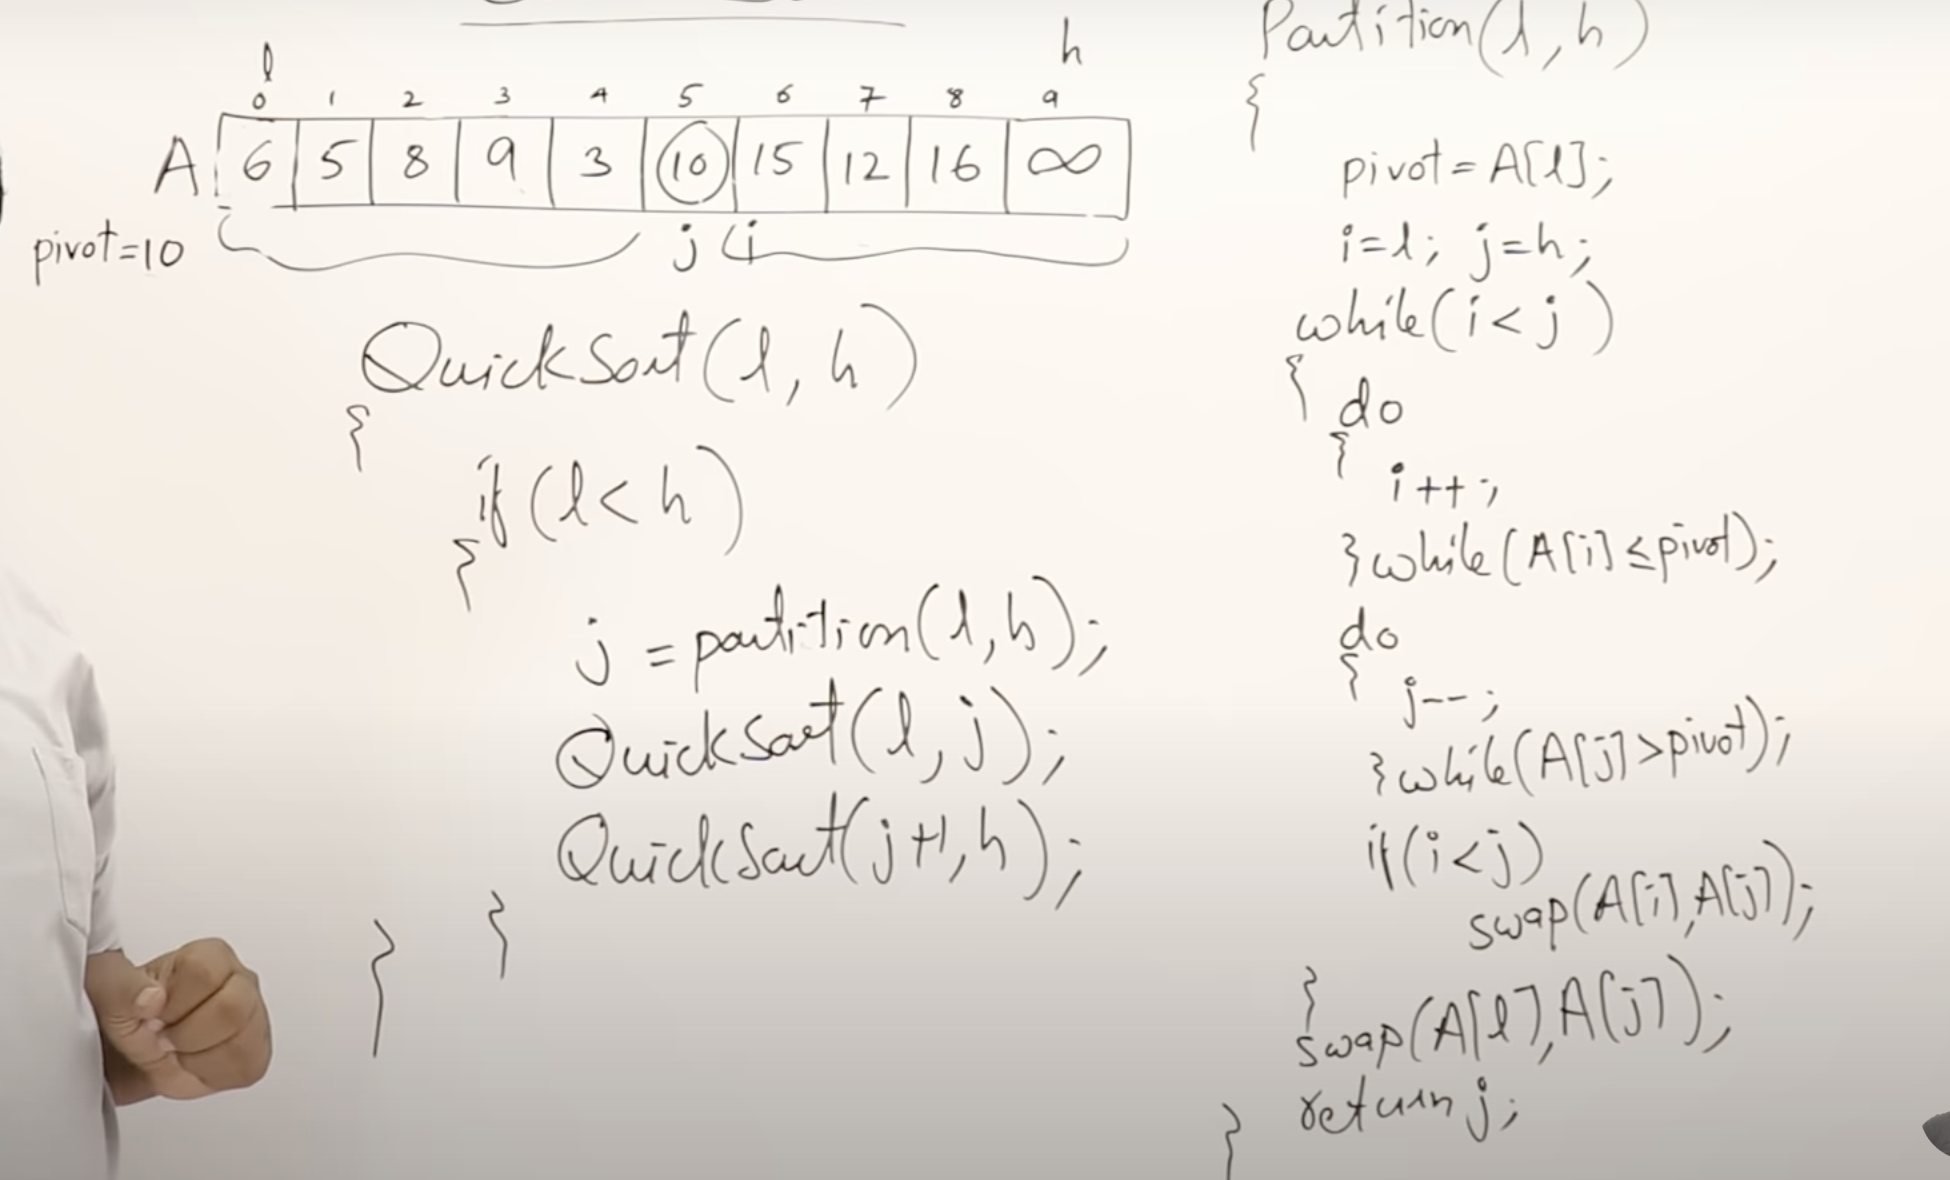 l h
0 1 2 3 4 5 6 7 8 9
A 6 5 8 9 3 10 15 12 16 ∞
pivot=10 j i
QuickSort(l, h)
{
if(l<h)
{
j = partition(l,h);
QuickSort(l, j);
QuickSort(j+1,h);
}
}
Partition(l,h)
{
pivot=A[l];
i=l; j=h;
while(i<j)
{ do
{
i++;
}while(A[i]≤pivot);
do
{
j--;
}while(A[j]>pivot);
if(i<j)
swap(A[i],A[j]);
}
swap(A[l],A[j]);
return j;
}